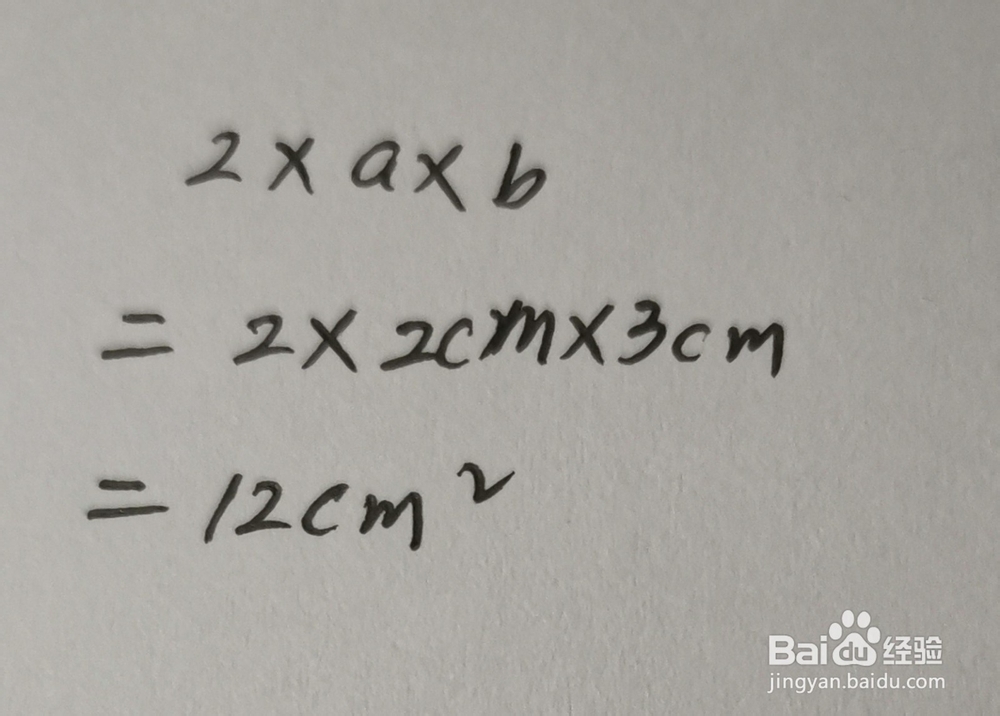 2×a×b
= 2×2cm×3cm
= 12cm²
Baidu经验
jingyan.baidu.com